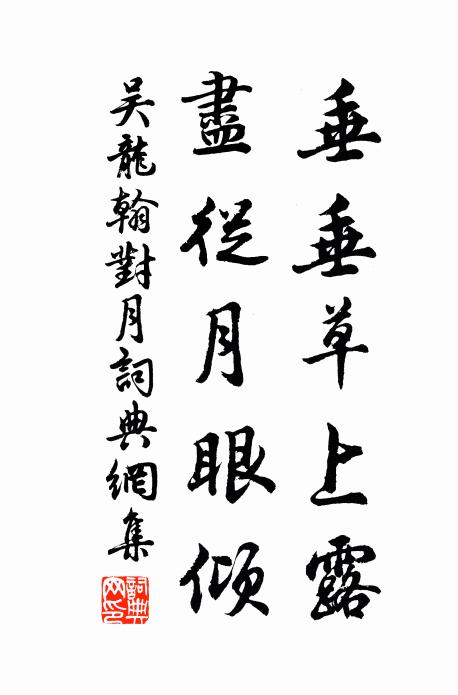 垂垂草上露
盡從月眼傾
吴龍翰對月詞典網集
詞典網印